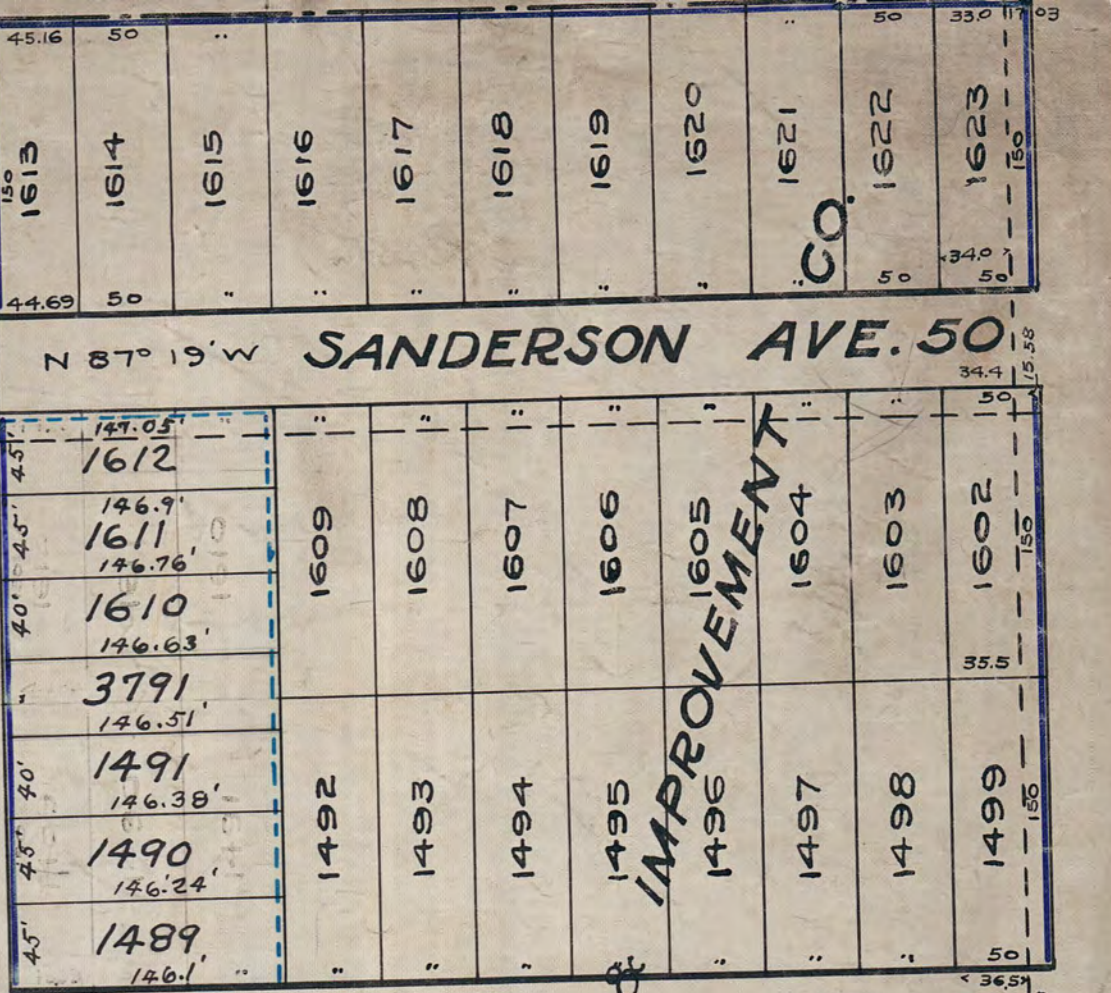 45.16 50 " " 50 33.0 17.03
150 1613 1614 1615 1616 1617 1618 1619 1620 1621 1622 1623 150
34.0
44.69 50 " " " " " " " 50 50
CO.
N 87° 19' W SANDERSON AVE. 50
34.4 15.58
" " " " " " " 50
147.05'
45' 1612
146.9'
45' 1611
146.76'
40' 1610
146.63'
" 3791
146.51'
40' 1491
146.38'
45' 1490
146.24'
45' 1489
146.1' "
1609 1608 1607 1606 1605 1604 1603 1602 150
35.5
IMPROVEMENT
1492 1493 1494 1495 1496 1497 1498 1499 150
" " " " " " 50
36.5